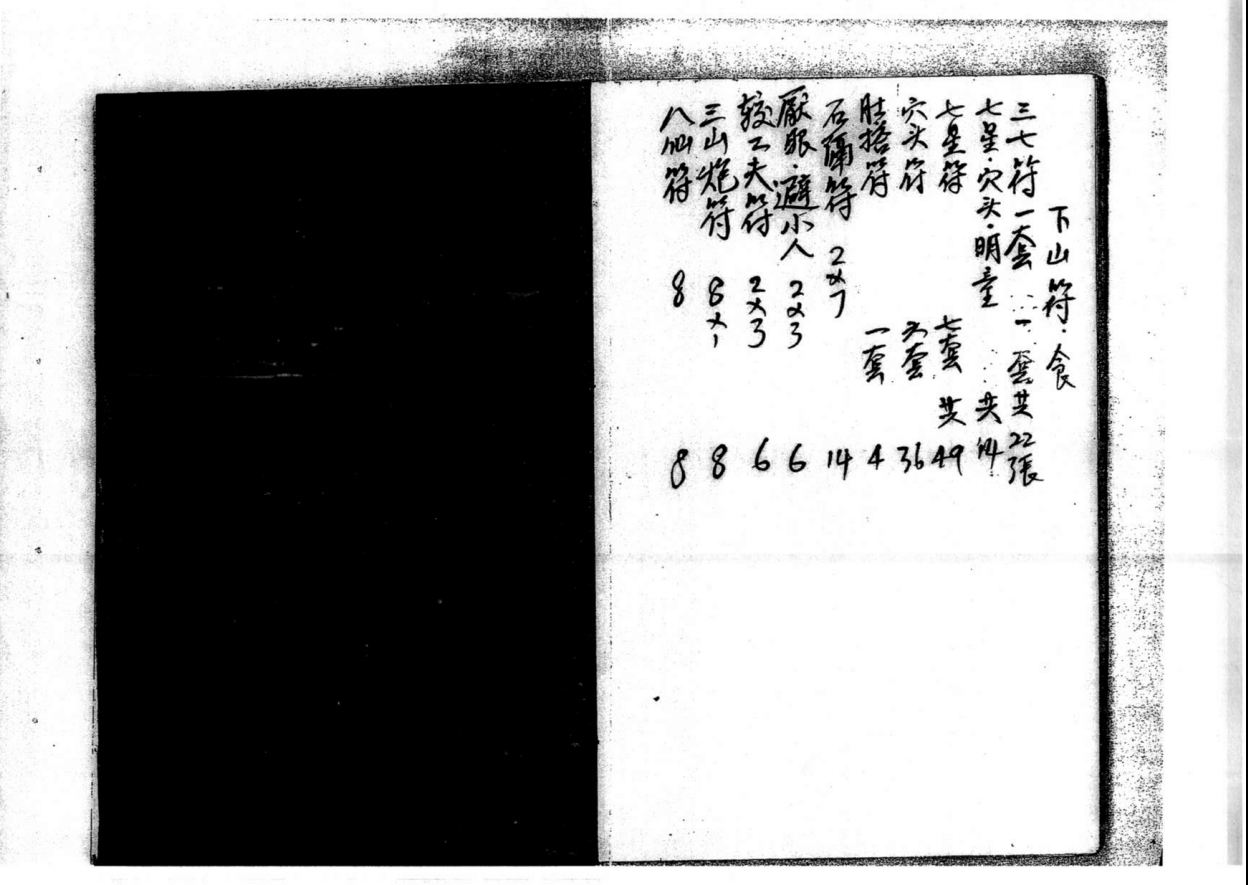 下山符·食
三七符一套 … 一套共22張
七星·穴头·明堂 … 共14
七星符 七套 共49
穴头符 六套 36
肚搭符 一套 4
石隔符 2×7 14
厭眼·避小人 2×3 6
較工夫符 2×3 6
三山炮符 8×1 8
八仙符 8 8